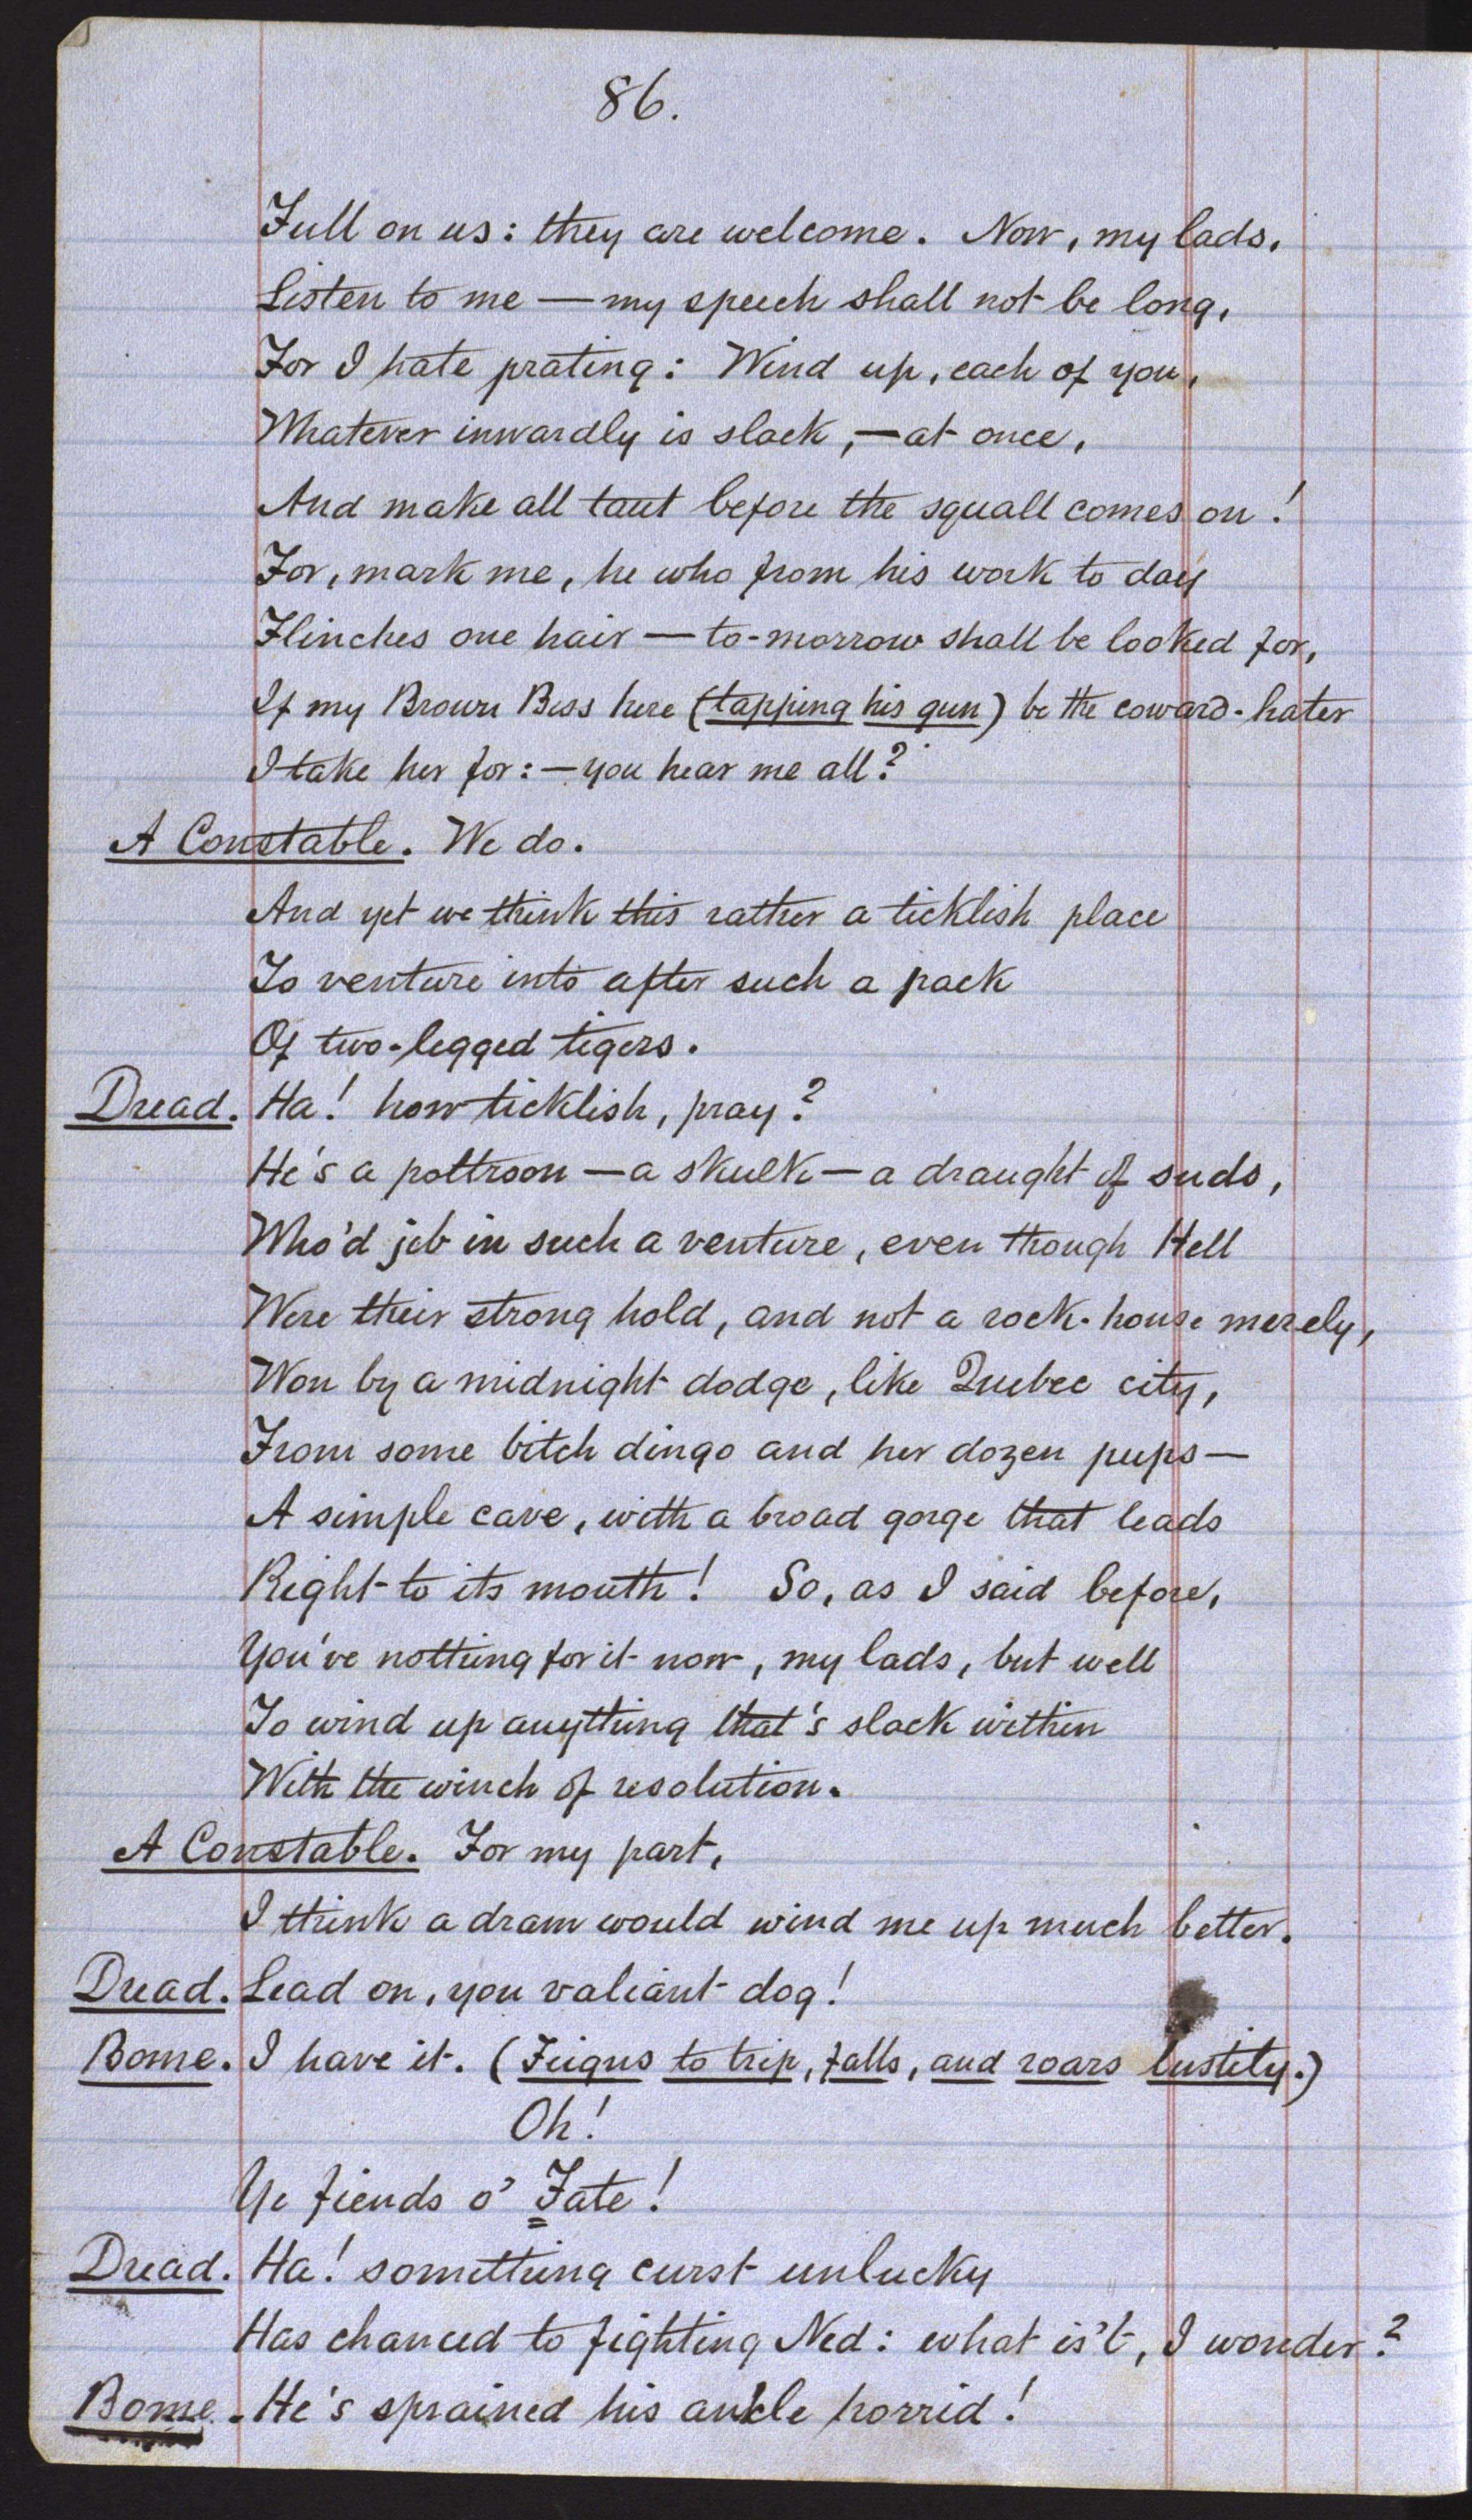 86.
Full on us: they are welcome. Now, my lads,
Listen to me — my speech shall not be long,
For I hate prating: Wind up, each of you,
Whatever inwardly is slack, — at once,
And make all taut before the squall comes on!
For, mark me, he who from his work to day
Flinches one hair — to-morrow shall be looked for,
If my Brown Bess here (tapping his gun) be the coward-hater
I take her for: — you hear me all?
A Constable. We do.
And yet we think this rather a ticklish place
To venture into after such a pack
Of two-legged tigers.
Dread. Ha! how ticklish, pray?
He's a poltroon — a skulk — a draught of suds,
Who'd jib in such a venture, even though Hell
Were their strong hold, and not a rock-house merely,
Won by a midnight dodge, like Quebec city,
From some bitch dingo and her dozen pups —
A simple cave, with a broad gorge that leads
Right to its mouth! So, as I said before,
You've nothing for it now, my lads, but well
To wind up anything that's slack within
With the winch of resolution.
A Constable. For my part,
I think a dram would wind me up much better.
Dread. Lead on, you valiant dog!
Bome. I have it. (Feigns to trip, falls, and roars lustily.)
Oh!
Ye fiends o' Fate!
Dread. Ha! something curst unlucky
Has chanced to fighting Ned: what is't, I wonder?
Bome. He's sprained his ankle horrid!